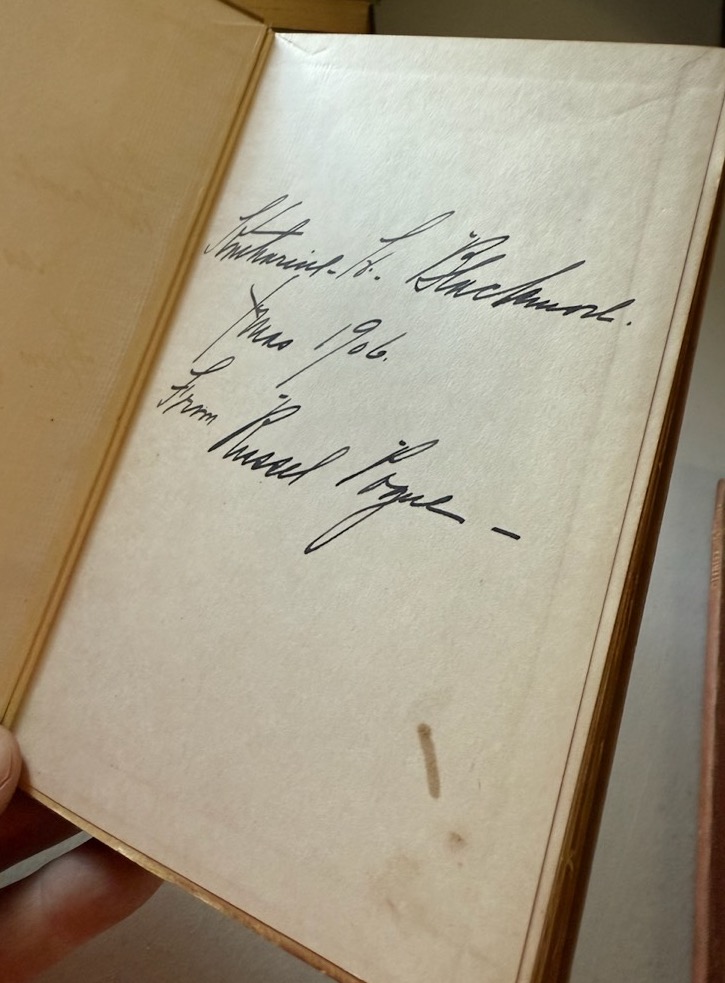 Katharine H. Blackmore.
Xmas 1906.
From Russel Pogue –